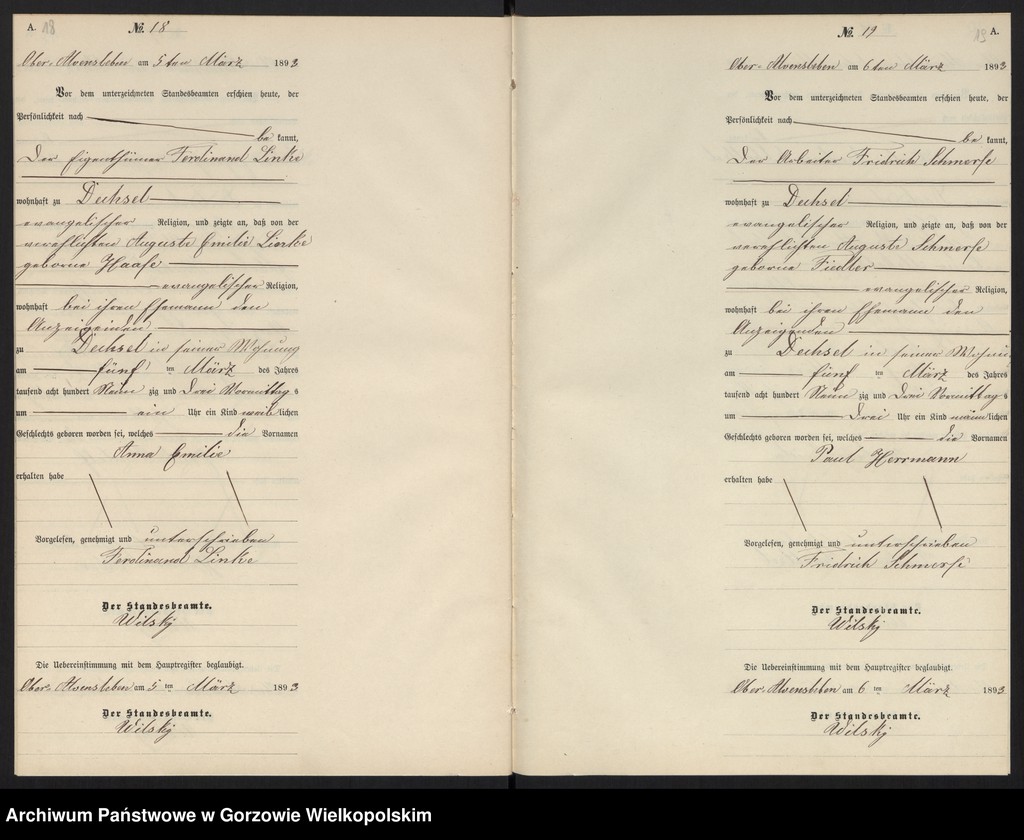 A. 18
No. 18
Ober-Alvensleben am 5ten März 1893
Vor dem unterzeichneten Standesbeamten erschien heute, der
Persönlichkeit nach
be kannt,
Der Eigenthümer Ferdinand Linke
wohnhaft zu Dechsel
evangelischer Religion, und zeigte an, daß von der
verehlichten Auguste Emilie Linke
geborne Haase
evangelischer Religion,
wohnhaft bei ihren Ehemann den
Anzeigenden
zu Dechsel in seiner Wohnung
am fünf ten März des Jahres
tausend acht hundert Neun zig und Drei Vormittag s
um ein Uhr ein Kind weib lichen
Geschlechts geboren worden sei, welches die Vornamen
Anna Emilie
erhalten habe
Vorgelesen, genehmigt und unterschrieben
Ferdinand Linke
Der Standesbeamte.
Wilsky
Die Uebereinstimmung mit dem Hauptregister beglaubigt.
Ober-Alvensleben am 5 ten März 1893
Der Standesbeamte.
Wilsky
No. 19
19 A.
Ober-Alvensleben am 6ten März 1893
Vor dem unterzeichneten Standesbeamten erschien heute, der
Persönlichkeit nach
be kannt,
Der Arbeiter Fridrich Schmerse
wohnhaft zu Dechsel
evangelischer Religion, und zeigte an, daß von der
verehlichten Auguste Schmerse
geborne Fiedler
evangelischer Religion,
wohnhaft bei ihren Ehemann den
Anzeigenden
zu Dechsel in seiner Wohn
am fünf ten März des Jahres
tausend acht hundert Neun zig und Drei Vormittag s
um Drei Uhr ein Kind männ lichen
Geschlechts geboren worden sei, welches die Vornamen
Paul Herrmann
erhalten habe
Vorgelesen, genehmigt und unterschrieben
Fridrich Schmerse
Der Standesbeamte.
Wilsky
Die Uebereinstimmung mit dem Hauptregister beglaubigt.
Ober-Alvensleben am 6 ten März 1893
Der Standesbeamte.
Wilsky
Archiwum Państwowe w Gorzowie Wielkopolskim